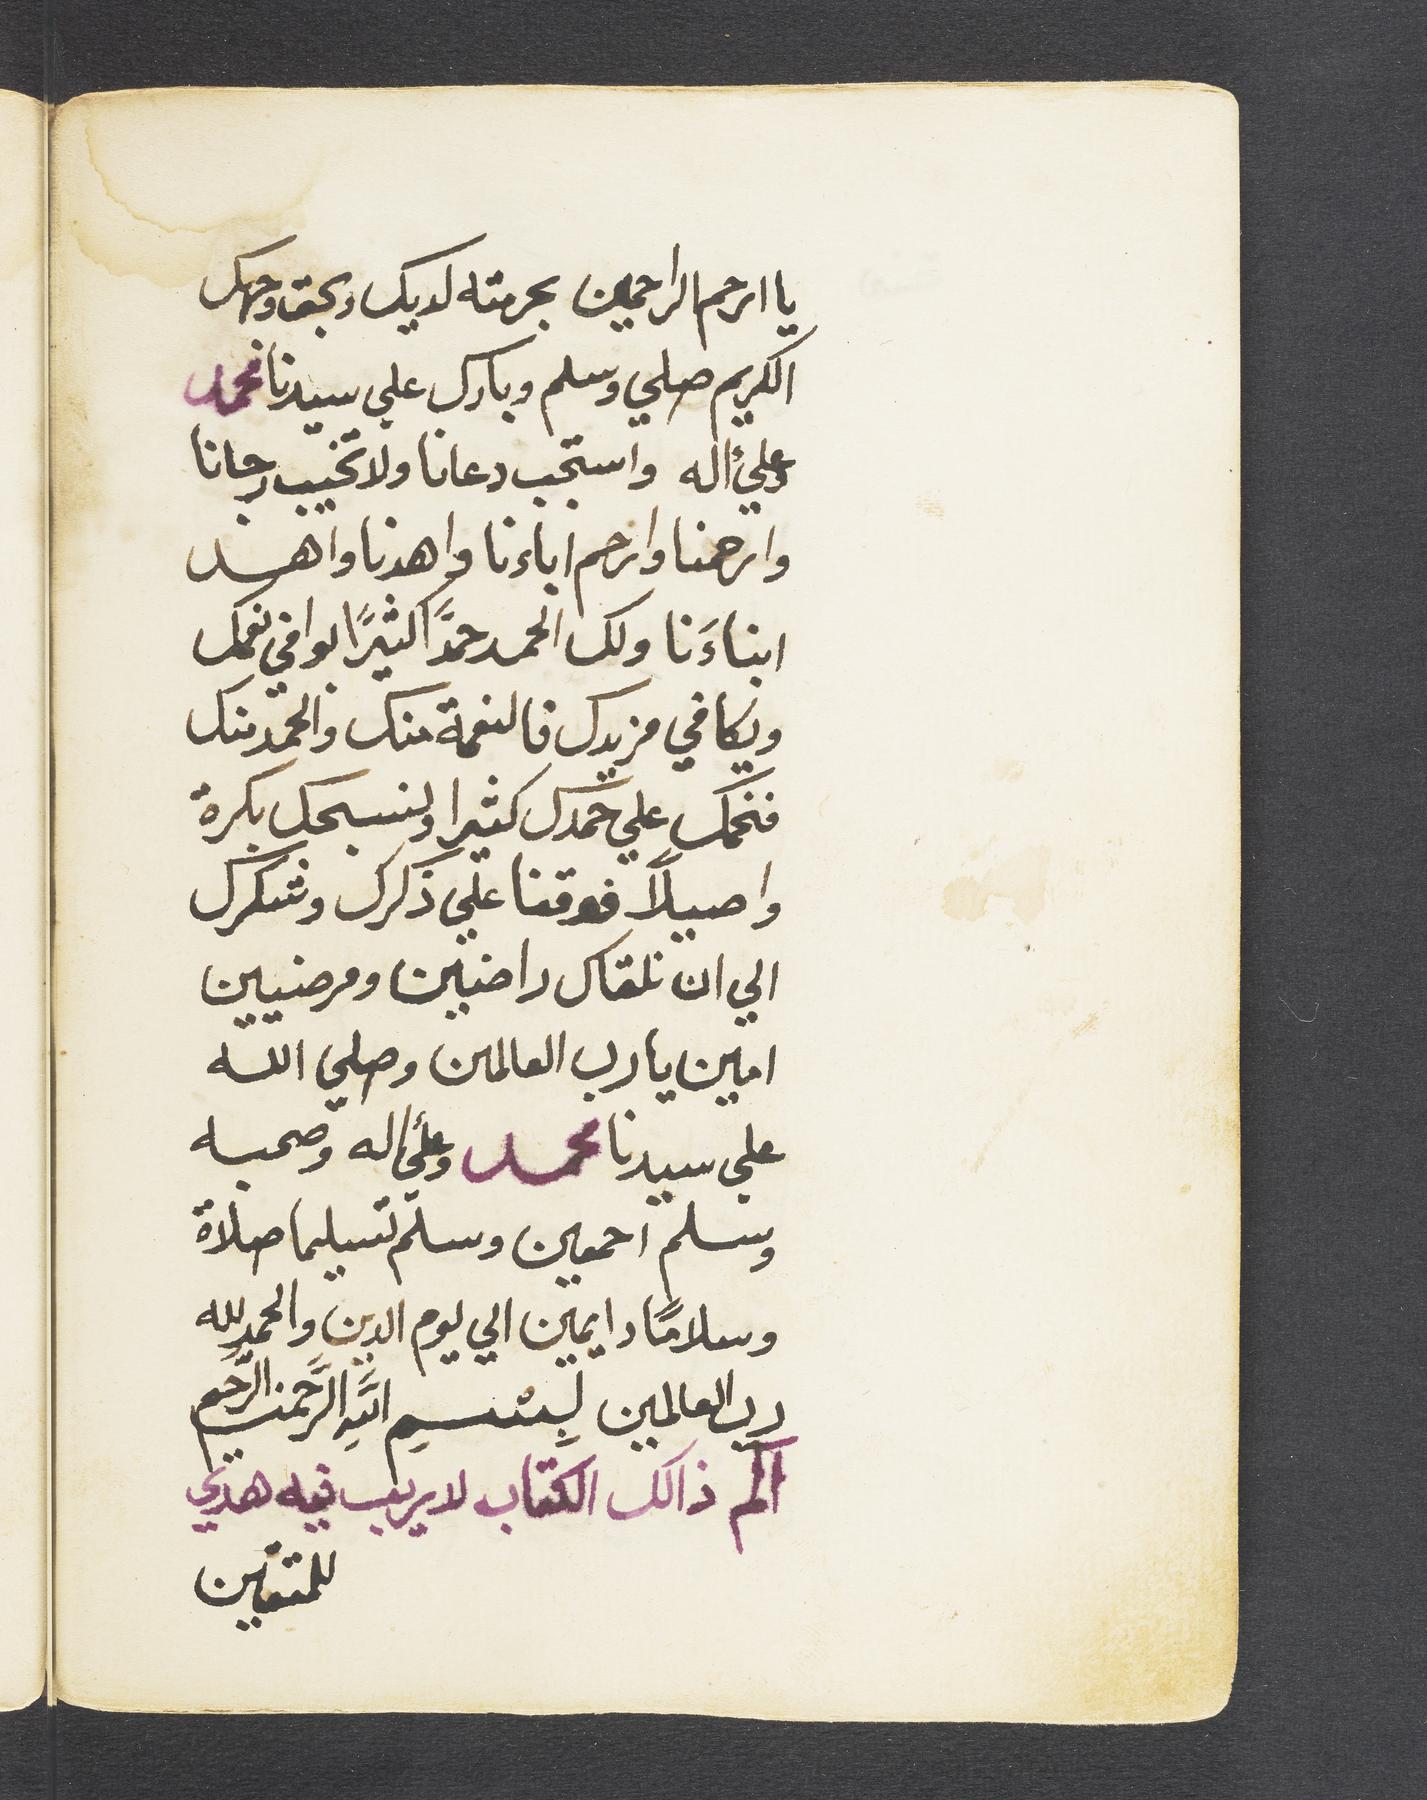 يا ارحم الراحمين بحرمته لديك وبحق وجهك
الكريم صلي وسلم وبارك علي سيدنا محمد
وعلي اله واستجب دعانا ولا تخيب رجانا
وارحمنا وارحم اباءنا واهدنا واهد
ابناءَنا ولك الحمد حمدًا كثيرًا يوافي نعمك
ويكافي مزيدك فالنعمة منك والحمد منك
فنحمك علي حمدك كثيرا ونسبحك بكرة
واصيلاً فوفقنا علي ذكرك وشكرك
الي ان نلقاك راضيين ومرضيين
امين يا رب العالمين وصلي الله
علي سيدنا محمد وعلي اله وصحبه
وسلم اجمعين وسلم تسليما صلاة
وسلامًا دايمين الي يوم الدين والحمد لله
رب العالمين بِسْمِ اللَّهِ الرَّحمن الرَّحيم
الم ذالك الكتاب لا ريب فيه هدي
للمتقين